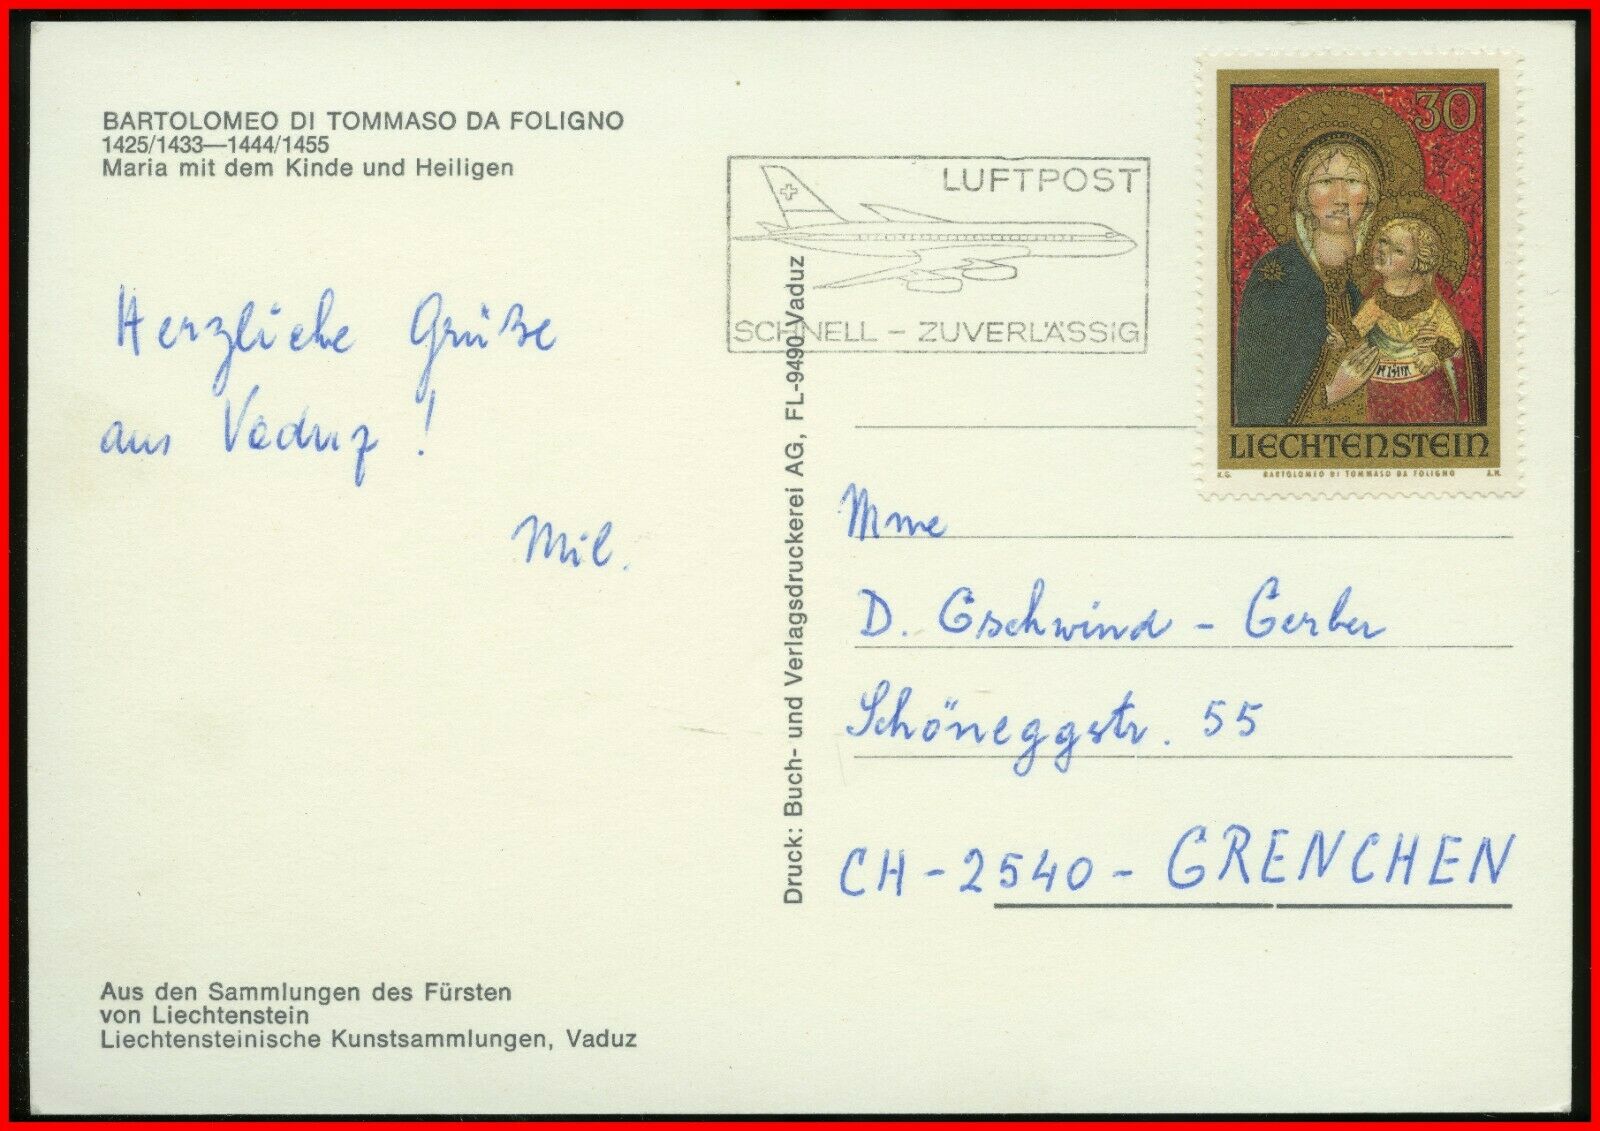 BARTOLOMEO DI TOMMASO DA FOLIGNO
1425/1433—1444/1455
Maria mit dem Kinde und Heiligen
Herzliche Grüße
aus Vaduz!
Mil.
Aus den Sammlungen des Fürsten
von Liechtenstein
Liechtensteinische Kunstsammlungen, Vaduz
Druck: Buch- und Verlagsdruckerei AG, FL-9490 Vaduz
LUFTPOST
SCHNELL - ZUVERLÄSSIG
30
LIECHTENSTEIN
K.G. BARTOLOMEO DI TOMMASO DA FOLIGNO A.N.
Mme
D. Gschwind - Gerber
Schöneggstr. 55
CH - 2540 - GRENCHEN